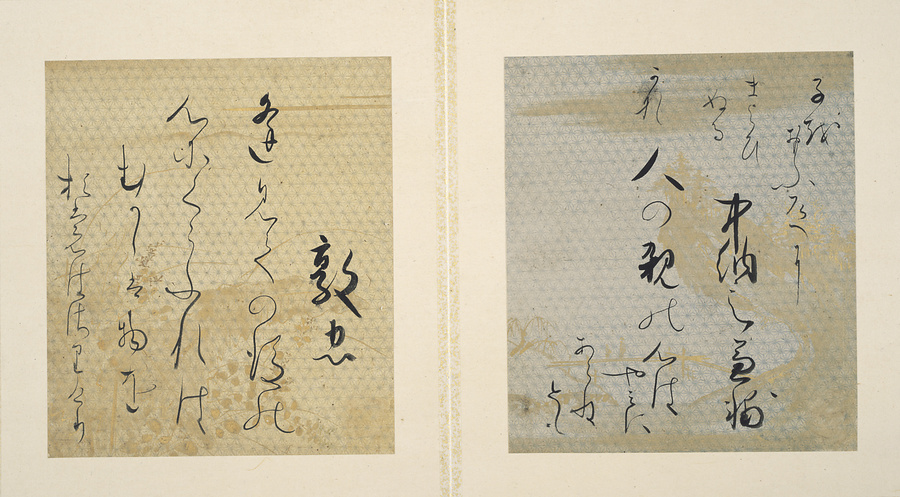 中納言兼輔
人の親の心は
やみに
あらね
とも
子を
おもふ道に
まよひ
ぬる
かな
敦忠
逢見ての後の
心にくらふれは
むかしは物を
おもはさりけり